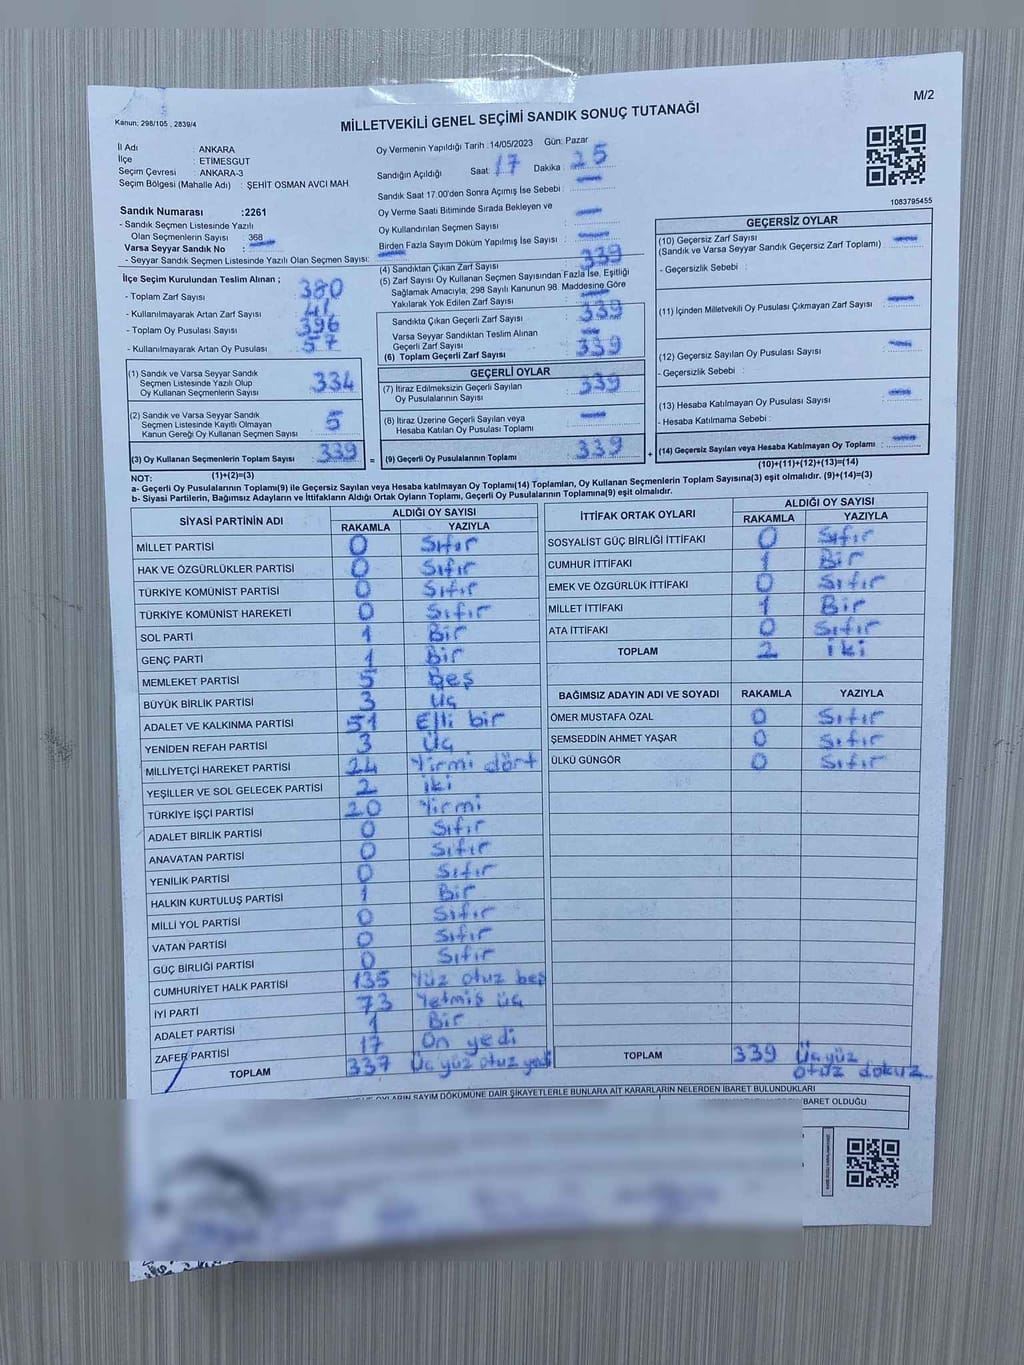 M/2
Kanun; 298/105 , 2839/4
MİLLETVEKİLİ GENEL SEÇİMİ SANDIK SONUÇ TUTANAĞI
İl Adı : ANKARA
İlçe : ETİMESGUT
Seçim Çevresi : ANKARA-3
Seçim Bölgesi (Mahalle Adı) : ŞEHİT OSMAN AVCI MAH.
Sandık Numarası :2261
- Sandık Seçmen Listesinde Yazılı
Olan Seçmenlerin Sayısı : 368
Varsa Seyyar Sandık No : -
- Seyyar Sandık Seçmen Listesinde Yazılı Olan Seçmen Sayısı: -
İlçe Seçim Kurulundan Teslim Alınan ;
- Toplam Zarf Sayısı : 380
- Kullanılmayarak Artan Zarf Sayısı : 41
- Toplam Oy Pusulası Sayısı : 396
- Kullanılmayarak Artan Oy Pusulası : 57
(1) Sandık ve Varsa Seyyar Sandık
Seçmen Listesinde Yazılı Olup
Oy Kullanan Seçmenlerin Sayısı : 334
(2) Sandık ve Varsa Seyyar Sandık
Seçmen Listesinde Kayıtlı Olmayan
Kanun Gereği Oy Kullanan Seçmen Sayısı : 5
(3) Oy Kullanan Seçmenlerin Toplam Sayısı : 339
(1)+(2)=(3)
Oy Vermenin Yapıldığı Tarih :14/05/2023 Gün: Pazar
Sandığın Açıldığı Saat: 17 Dakika : 25
Sandık Saat 17:00'den Sonra Açımış İse Sebebi : -
Oy Verme Saati Bitiminde Sırada Bekleyen ve
Oy Kullandırılan Seçmen Sayısı : -
Birden Fazla Sayım Döküm Yapılmış İse Sayısı : -
(4) Sandıktan Çıkan Zarf Sayısı : 339
(5) Zarf Sayısı Oy Kullanan Seçmen Sayısından Fazla İse, Eşitliği
Sağlamak Amacıyla, 298 Sayılı Kanunun 98. Maddesine Göre
Yakılarak Yok Edilen Zarf Sayısı : -
Sandıkta Çıkan Geçerli Zarf Sayısı : 339
Varsa Seyyar Sandıktan Teslim Alınan
Geçerli Zarf Sayısı : -
(6) Toplam Geçerli Zarf Sayısı : 339
GEÇERLİ OYLAR
(7) İtiraz Edilmeksizin Geçerli Sayılan
Oy Pusulasının Sayısı : 339
(8) İtiraz Üzerine Geçerli Sayılan veya
Hesaba Katılan Oy Pusulası Toplamı : -
= (9) Geçerli Oy Pusulalarının Toplamı : 339 +
1083795455
GEÇERSİZ OYLAR
(10) Geçersiz Zarf Sayısı : -
(Sandık ve Varsa Seyyar Sandık Geçersiz Zarf Toplamı)
- Geçersizlik Sebebi :
(11) İçinden Milletvekili Oy Pusulası Çıkmayan Zarf Sayısı : -
(12) Geçersiz Sayılan Oy Pusulası Sayısı : -
- Geçersizlik Sebebi :
(13) Hesaba Katılmayan Oy Pusulası Sayısı : -
- Hesaba Katılmama Sebebi :
(14) Geçersiz Sayılan veya Hesaba Katılmayan Oy Toplamı : -
(10)+(11)+(12)+(13)=(14)
NOT:
a- Geçerli Oy Pusulalarının Toplamı(9) ile Geçersiz Sayılan veya Hesaba katılmayan Oy Toplamı(14) Toplamları, Oy Kullanan Seçmenlerin Toplam Sayısına(3) eşit olmalıdır. (9)+(14)=(3)
b- Siyasi Partilerin, Bağımsız Adayların ve İttifakların Aldığı Ortak Oyların Toplamı, Geçerli Oy Pusulalarının Toplamına(9) eşit olmalıdır.
SİYASİ PARTİNİN ADI ALDIĞI OY SAYISI
RAKAMLA YAZIYLA
MİLLET PARTİSİ 0 Sıfır
HAK VE ÖZGÜRLÜKLER PARTİSİ 0 Sıfır
TÜRKİYE KOMÜNİST PARTİSİ 0 Sıfır
TÜRKİYE KOMÜNİST HAREKETİ 0 Sıfır
SOL PARTİ 1 Bir
GENÇ PARTİ 1 Bir
MEMLEKET PARTİSİ 5 Beş
BÜYÜK BİRLİK PARTİSİ 3 Üç
ADALET VE KALKINMA PARTİSİ 51 Elli bir
YENİDEN REFAH PARTİSİ 3 Üç
MİLLİYETÇİ HAREKET PARTİSİ 24 Yirmi dört
YEŞİLLER VE SOL GELECEK PARTİSİ 2 iki
TÜRKİYE İŞÇİ PARTİSİ 20 Yirmi
ADALET BİRLİK PARTİSİ 0 Sıfır
ANAVATAN PARTİSİ 0 Sıfır
YENİLİK PARTİSİ 0 Sıfır
HALKIN KURTULUŞ PARTİSİ 1 Bir
MİLLİ YOL PARTİSİ 0 Sıfır
VATAN PARTİSİ 0 Sıfır
GÜÇ BİRLİĞİ PARTİSİ 0 Sıfır
CUMHURİYET HALK PARTİSİ 135 Yüz otuz beş
İYİ PARTİ 73 Yetmiş üç
ADALET PARTİSİ 1 Bir
ZAFER PARTİSİ 17 On yedi
TOPLAM 337 Üç yüz otuz yedi
İTTİFAK ORTAK OYLARI ALDIĞI OY SAYISI
RAKAMLA YAZIYLA
SOSYALİST GÜÇ BİRLİĞİ İTTİFAKI 0 Sıfır
CUMHUR İTTİFAKI 1 Bir
EMEK VE ÖZGÜRLÜK İTTİFAKI 0 Sıfır
MİLLET İTTİFAKI 1 Bir
ATA İTTİFAKI 0 Sıfır
TOPLAM 2 iki
BAĞIMSIZ ADAYIN ADI VE SOYADI RAKAMLA YAZIYLA
ÖMER MUSTAFA ÖZAL 0 Sıfır
ŞEMSEDDİN AHMET YAŞAR 0 Sıfır
ÜLKÜ GÜNGÖR 0 Sıfır
TOPLAM 339 Üç yüz
otuz dokuz
OYLARIN SAYIM DÖKÜMÜNE DAİR ŞİKAYETLERLE BUNLARA AİT KARARLARIN NELERDEN İBARET BULUNDUKLARI
İBARET OLDUĞU